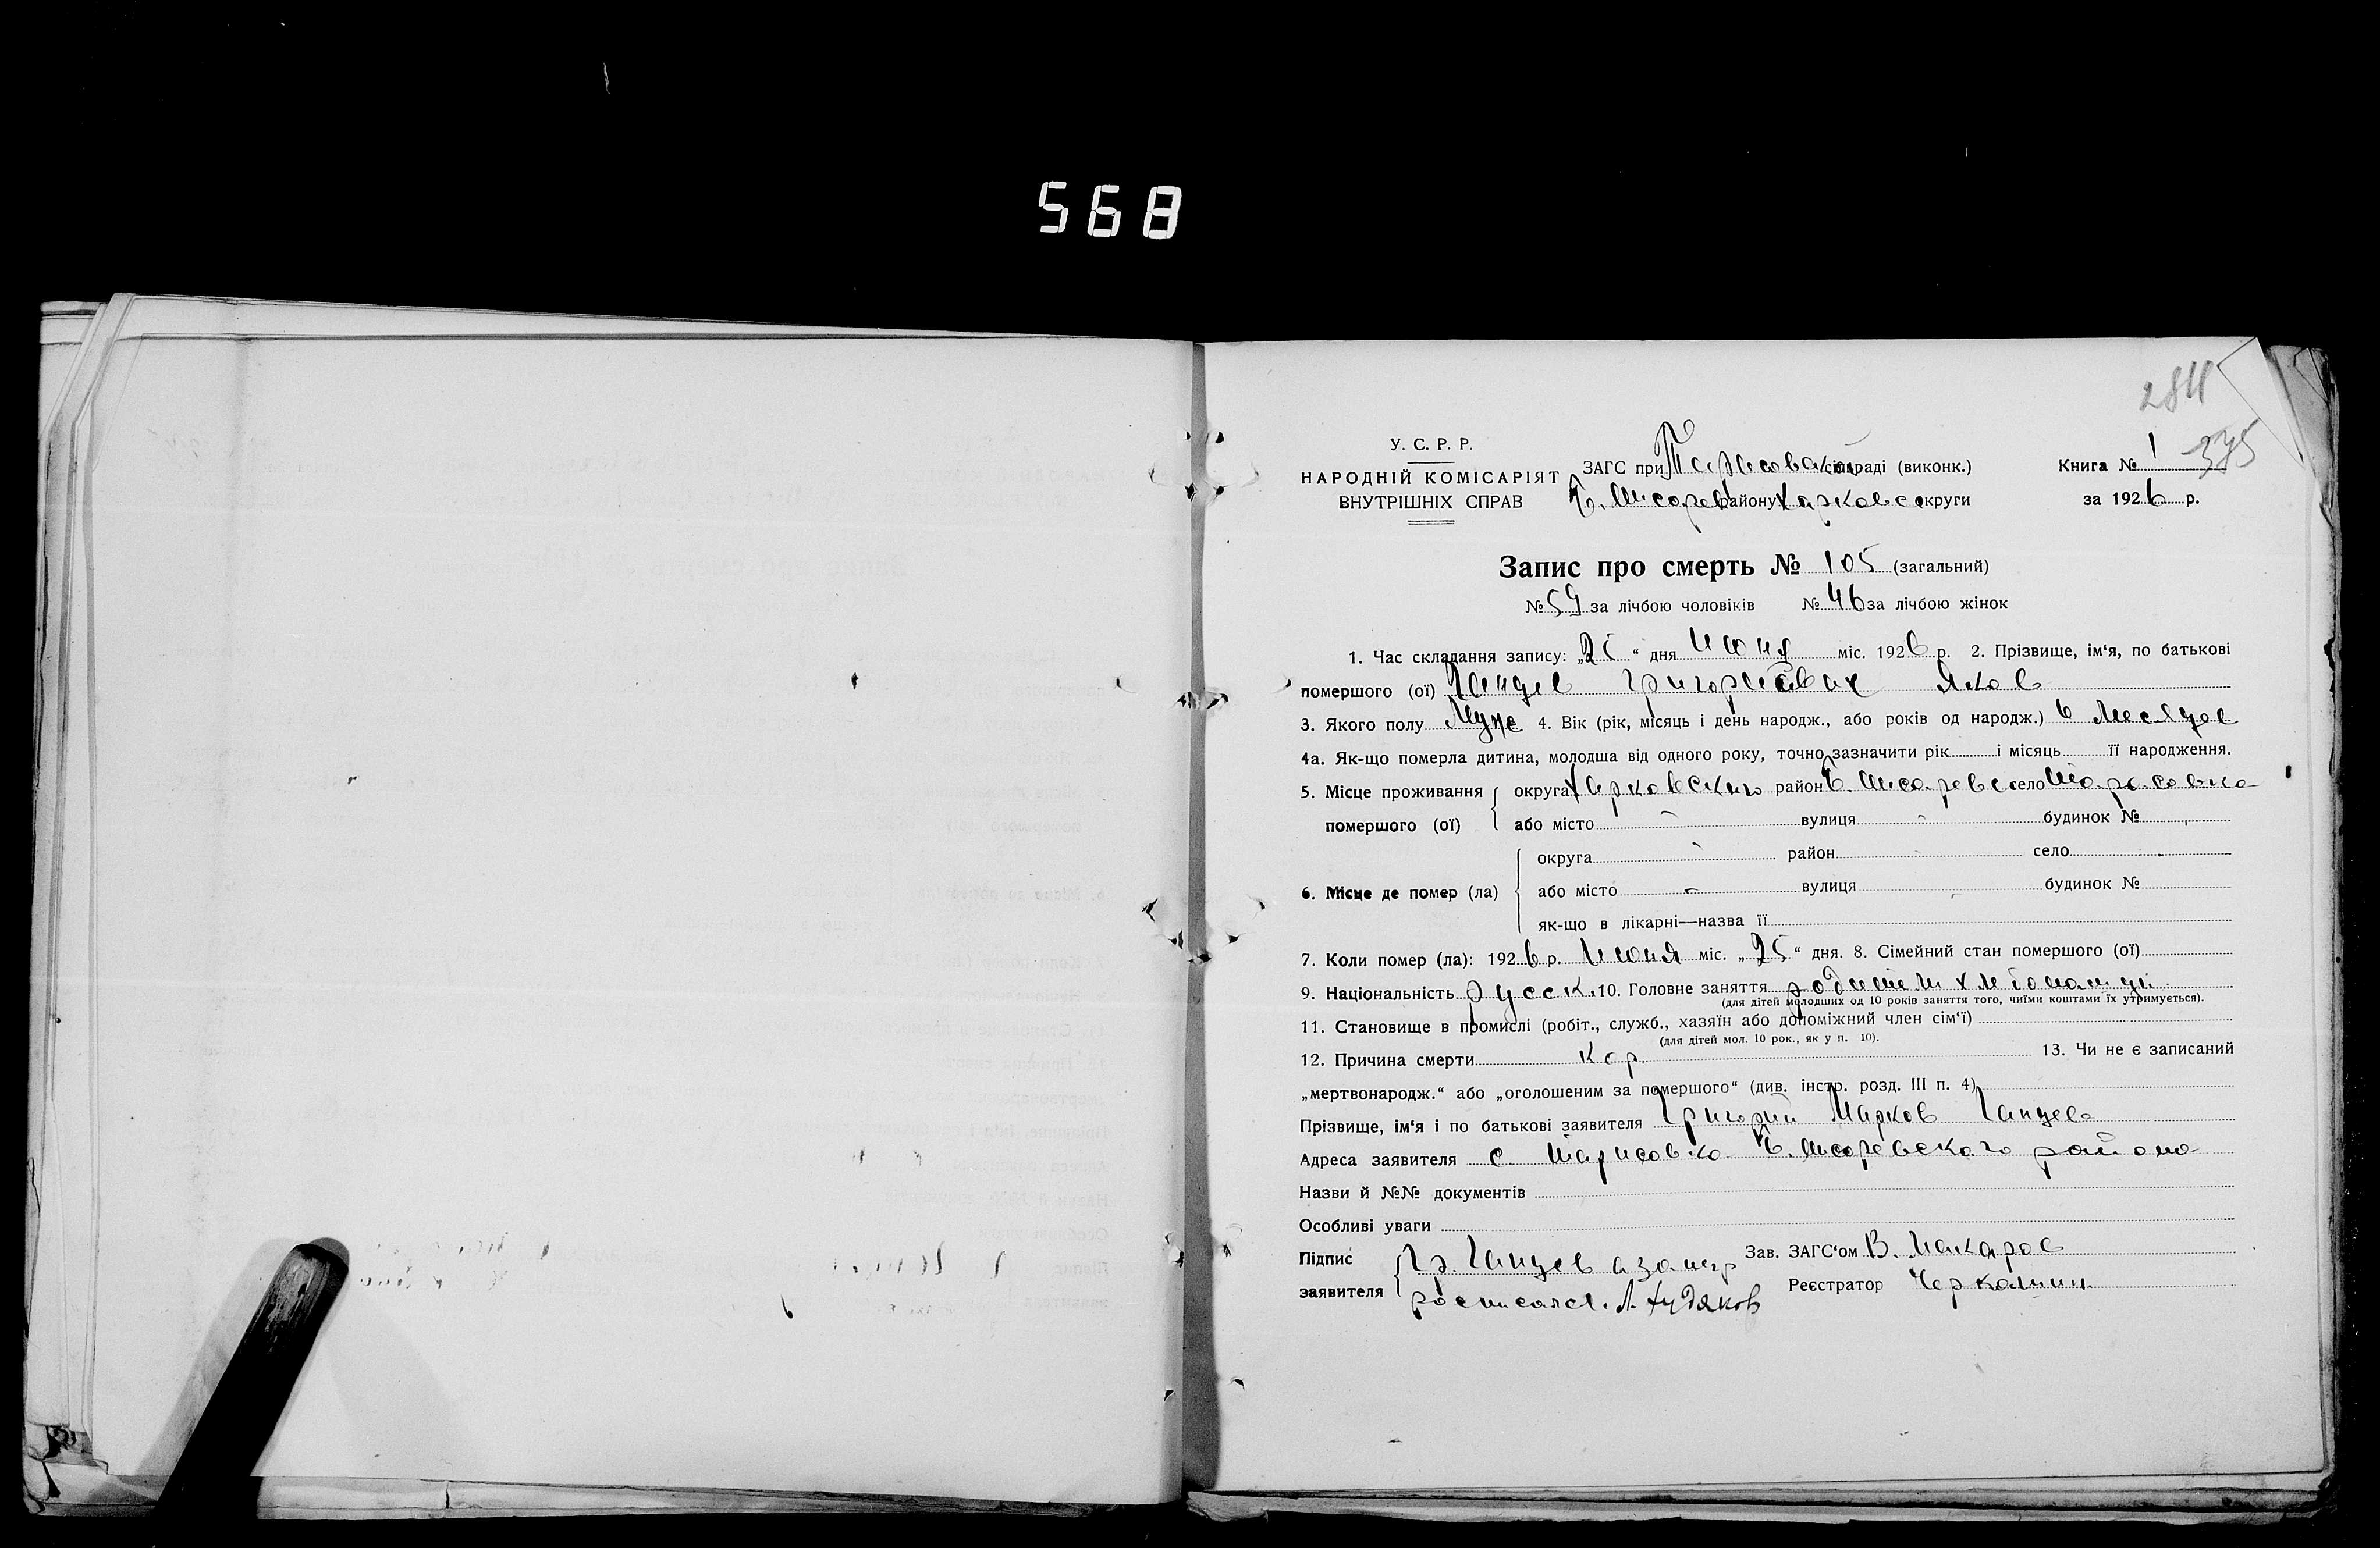 568
284
385
У. С. Р. Р.
НАРОДНІЙ КОМІСАРІЯТ
ВНУТРІШНІХ СПРАВ
ЗАГС при Тарасовской сільраді (виконк.)
Б. Писарев району Харковс округи
Книга № 1
за 1926 р.
Запис про смерть № 105 (загальний)
№ 59 за лічбою чоловіків № 46 за лічбою жінок
1. Час складання запису: „25“ дня Июня міс. 1926 р. 2. Прізвище, ім‘я, по батькові
помершого (ої) Ганцев Григориевич Яков
3. Якого полу Муже 4. Вік (рік, місяць і день народж., або років од народж.) 6 месяцев
4а. Як-що померла дитина, молодша від одного року, точно зазначити рік і місяць її народження.
5. Місце проживання округа Харковского район Б. Писаревс село Тарасовка
помершого (ої) або місто - вулиця - будинок № -
округа - район - село -
6. Місце де помер (ла) або місто - вулиця - будинок №
як-що в лікарні—назва її
7. Коли помер (ла): 1926 р. Июня міс. „25“ дня. 8. Сімейний стан помершого (ої)
9. Національність русск. 10. Головне заняття родители хлебопашци
(для дітей молодших од 10 років заняття того, чиїми коштами їх утримується).
11. Становище в промислі (робіт., служб., хазяїн або допоміжний член сім‘ї)
(для дітей мол. 10 рок., як у п. 10).
12. Причина смерти Кор 13. Чи не є записаний
„мертвонародж.“ або „оголошеним за помершого“ (див. інстр. розд. III п. 4)
Прізвище, ім‘я і по батькові заявителя Григорий Марков Ганцев
Адреса заявителя с. Тарасовка Б. Писаревского района
Назви й №№ документів
Особливі уваги
Підпис Гр. Ганцев а за негр Зав. ЗАГС‘ом В. Макаров
заявителя росписался. Л. Худяков Реєстратор Черкашин